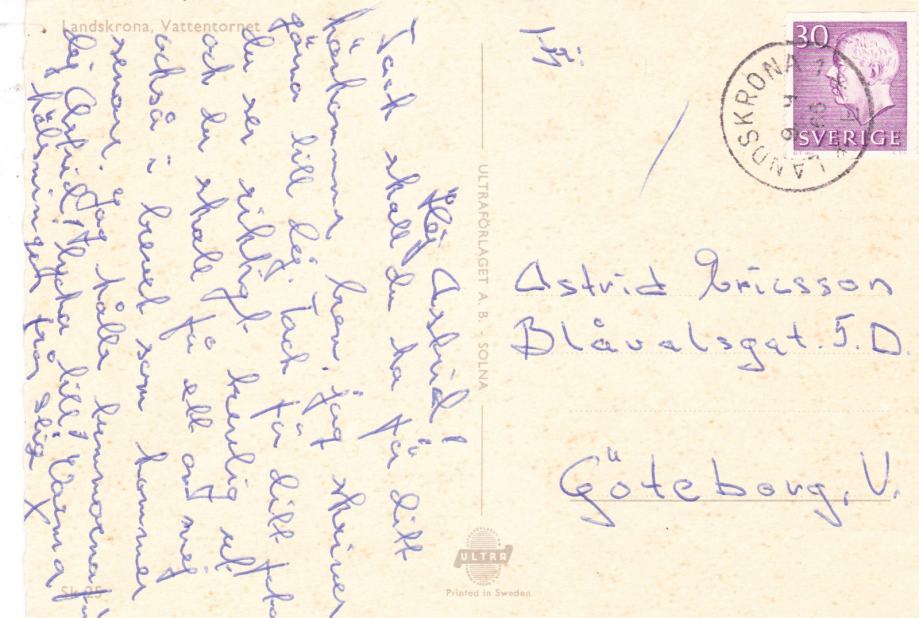 Landskrona, Vattentornet
Hej Astrid!
Tack skall du ha för ditt
kort jag skriver
gärna till dej. Tack för ditt foto
du ser riktigt trevlig ut
och du skall få ett av mej
också i brevet som kommer
senare. jag håller tummarna för
dej Astrid! Lycka till! Varma
hälsningar från Stig X
ULTRAFÖRLAGET A. B. - SOLNA
ULTRA
Printed in Sweden
Sk 25
30
SVERIGE
LANDSKRONA 1
Astrid Ericsson
Blåvalsgat. 5. D.
Göteborg, V.